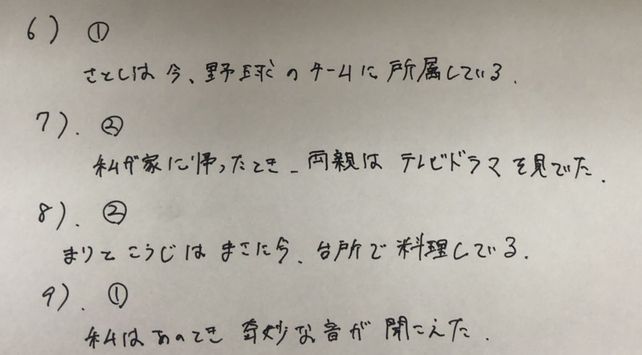 6) ①
さとしは今、野球のチームに所属している.
7). ②
私が家に帰ったとき、両親は テレビドラマを見でた.
8). ②
まりとこうじは まさに今、台所で料理している.
9). ①
私はあのとき 奇妙な音が 聞こえた.